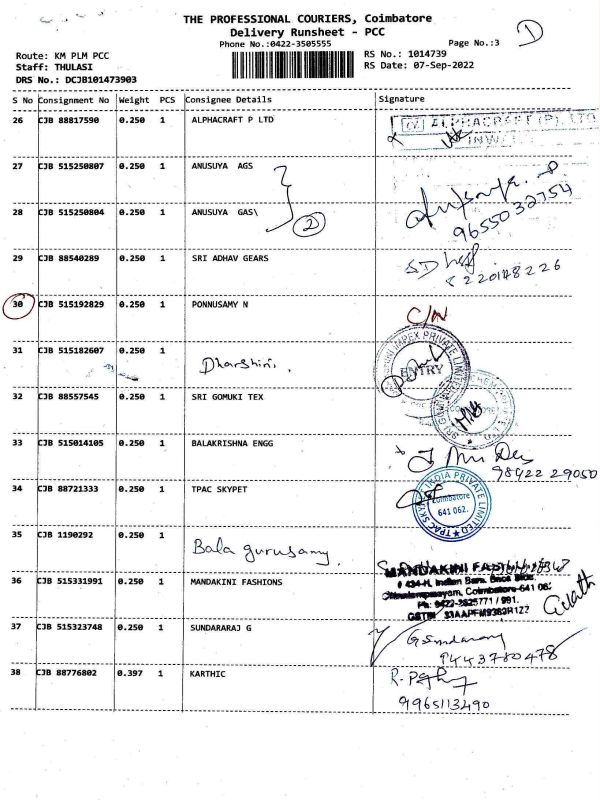 THE PROFESSIONAL COURIERS, Coimbatore
Delivery Runsheet - PCC
Phone No.:0422-3505555
Page No.:3
Route: KM PLM PCC
RS No.: 1014739
Staff: THULASI
RS Date: 07-Sep-2022
DRS No.: DCJB101473903
S No Consignment No Weight PCS Consignee Details Signature
26 CJB 88817590 0.250 1 ALPHACRAFT P LTD
ALPHACRAFT (P). LTD
27 CJB 515250807 0.250 1 ANUSUYA AGS
28 CJB 515250804 0.250 1 ANUSUYA GAS\
2
9655032754
29 CJB 88540289 0.250 1 SRI ADHAV GEARS
8220148226
30 CJB 515192829 0.250 1 PONNUSAMY N
C/N
31 CJB 515182607 0.250 1 Dharshini.
ENTRY
32 CJB 88557545 0.250 1 SRI GOMUKI TEX
33 CJB 515014105 0.250 1 BALAKRISHNA ENGG
98422 29050
34 CJB 88721333 0.250 1 TPAC SKYPET
TPAC SKYPET INDIA PRIVATE LIMITED
Coimbatore
641 062.
35 CJB 1190292 0.250 1 Bala gurusamy
36 CJB 515331991 0.250 1 MANDAKINI FASHIONS
MANDAKINI FASHIONS
Coimbatore-641 062
37 CJB 515323748 0.250 1 SUNDARARAJ G
G Sundararaj
9443780478
38 CJB 88776802 0.397 1 KARTHIC
9965113490